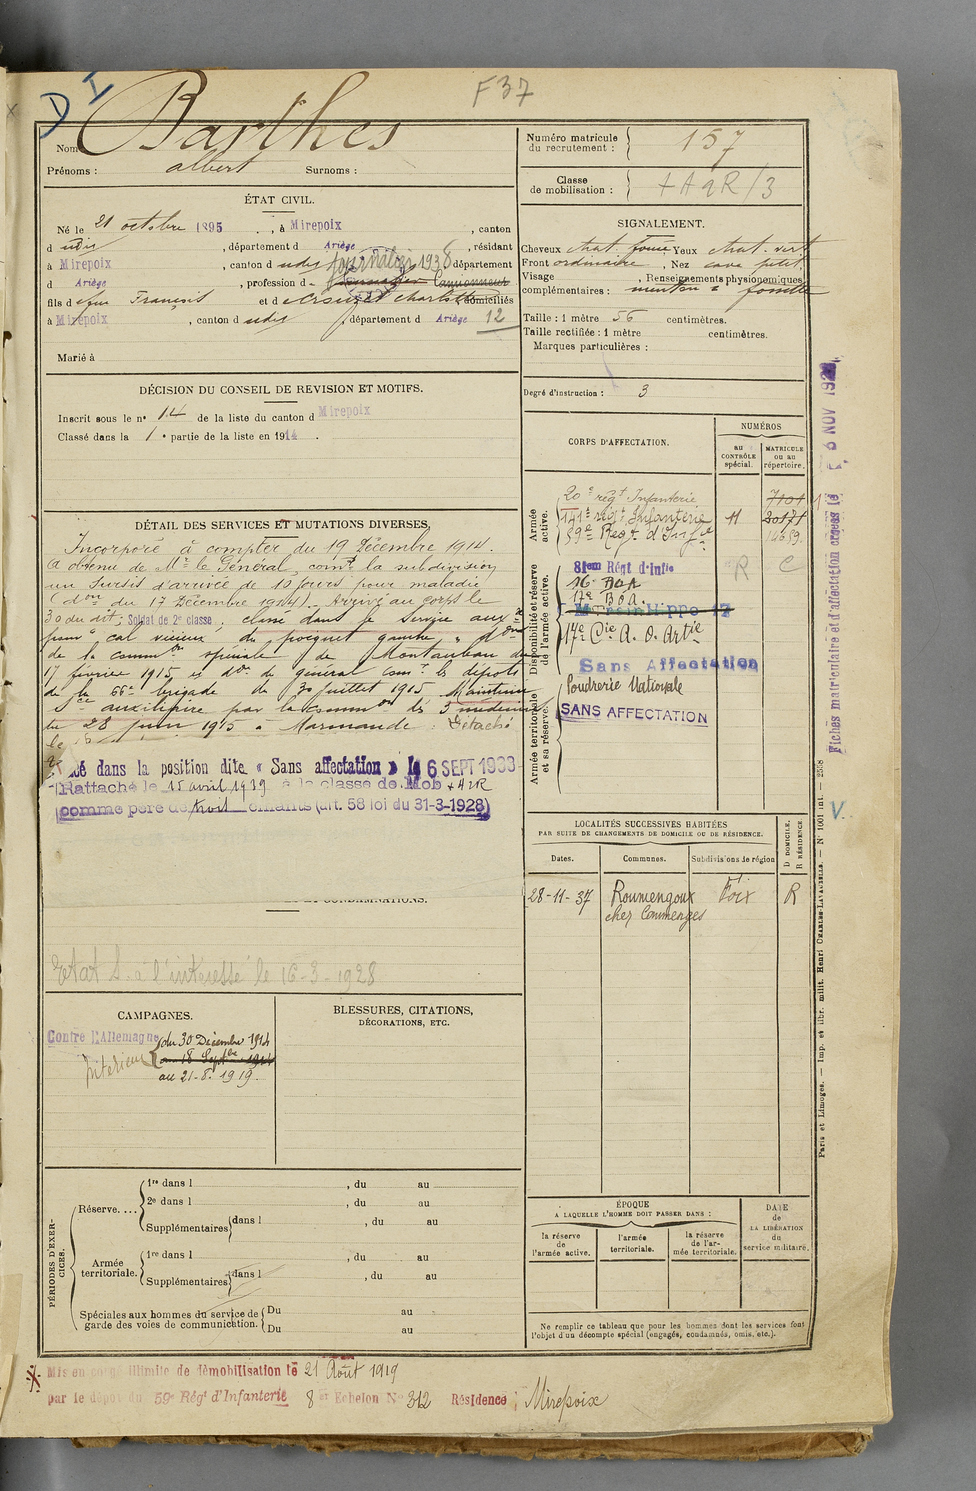 D I
F37
Nom Barthes
Prénoms : albert Surnoms :
Numéro matricule
du recrutement : 157
Classe
de mobilisation : + A 2R/3
ÉTAT CIVIL.
Né le 21 octobre 1895, à Mirepoix, canton
d udis, département d Ariège, résidant
à Mirepoix, canton d udis Journalier 1938 département
d Ariège, profession d
fils d François et d Charlotte domiciliés
à Mirepoix, canton d udis, département d Ariège 12
Marié à
SIGNALEMENT.
Cheveux chat. foncé Yeux chat. vert
Front ordinaire, Nez cave petit
Visage , Renseignements physionomiques
complémentaires : menton à fossette
Taille : 1 mètre 56 centimètres.
Taille rectifiée : 1 mètre centimètres.
Marques particulières :
Degré d'instruction : 3
DÉCISION DU CONSEIL DE REVISION ET MOTIFS.
Inscrit sous le n° 14 de la liste du canton d Mirepoix
Classé dans la 1e partie de la liste en 1914.
DÉTAIL DES SERVICES ET MUTATIONS DIVERSES,
Incorporé à compter du 19 Décembre 1914.
a obtenu de Mr le Général comt la subdivision
un sursis d'arrivée de 10 jours pour maladie
(don du 17 Décembre 1914). Arrivé au corps le
30 du dit; Soldat de 2e classe, classé dans le service auxre
pour "cal vicieux du poignet gauche"
de la common spéciale de Montauban du
17 février 1915 et don du général comt les dépôts
de la 66e brigade du 30 juillet 1915. Maintenu
Sce auxiliaire par la common des 3 médecins
du 28 juin 1915 à Marmande. Détaché
le
cé dans la position dite « Sans affectation » le 6 SEPT 1933
Rattaché le 15 avril 1939 à la classe de Mob + A2R
comme père de trois enfants (art. 58 loi du 31-3-1928)
ET CONDAMNATIONS.
Etat S. à l'intéressé le 16-3-1928
CORPS D'AFFECTATION.
NUMÉROS
au
CONTRÔLE
spécial.
MATRICULE
ou au
répertoire.
Armée
active.
20e régt Infanterie 7101
141e régt Infanterie 11 20171
59e Régt d'Infie 14659
Disponibilité et réserve
de l'armée active.
81em Régt d'Infie R C
16e BOA
17e B.O.A.
Mag sin Hippo 17
14e Cie A. O. Artie
Sans Affectation
Armée territoriale
et sa réserve.
Poudrerie Nationale
SANS AFFECTATION
LOCALITÉS SUCCESSIVES HABITÉES
PAR SUITE DE CHANGEMENTS DE DOMICILE OU DE RÉSIDENCE.
D DOMICILE.
R RÉSIDENCE
Dates. Communes. Subdivisions de région
28-11-37 Roumengoux Foix R
chez Commenges
CAMPAGNES.
Contre l'Allemagne du 30 Décembre 1914
Intérieur au 18 Septbre 1914
au 21-8-1919.
BLESSURES, CITATIONS,
DÉCORATIONS, ETC.
PÉRIODES D'EXERCICES.
Réserve.... 1re dans l , du au
2e dans l , du au
Supplémentaires dans l , du au
Armée
territoriale. 1re dans l , du au
Supplémentaires dans l , du au
Spéciales aux hommes du service de
garde des voies de communication. Du au
Du au
ÉPOQUE
A LAQUELLE L'HOMME DOIT PASSER DANS :
la réserve
de
l'armée active.
l'armée
territoriale.
la réserve
de l'armée territoriale.
DATE
de
LA LIBÉRATION
du
service militaire.
Ne remplir ce tableau que pour les hommes dont les services font
l'objet d'un décompte spécial (engagés, condamnés, omis, etc.).
Mis en congé illimité de démobilisation le 21 Août 1919
par le dépôt du 59e Régt d'Infanterie 8e Echelon No 312 Résidence : Mirepoix
Fiches matriculaire et d'affectation créées le 6 NOV 192
V.
Paris et Limoges. — Imp. et libr. milit. Henri CHARLES-LAVAUZELLE. — N° 1001 int. — 2358